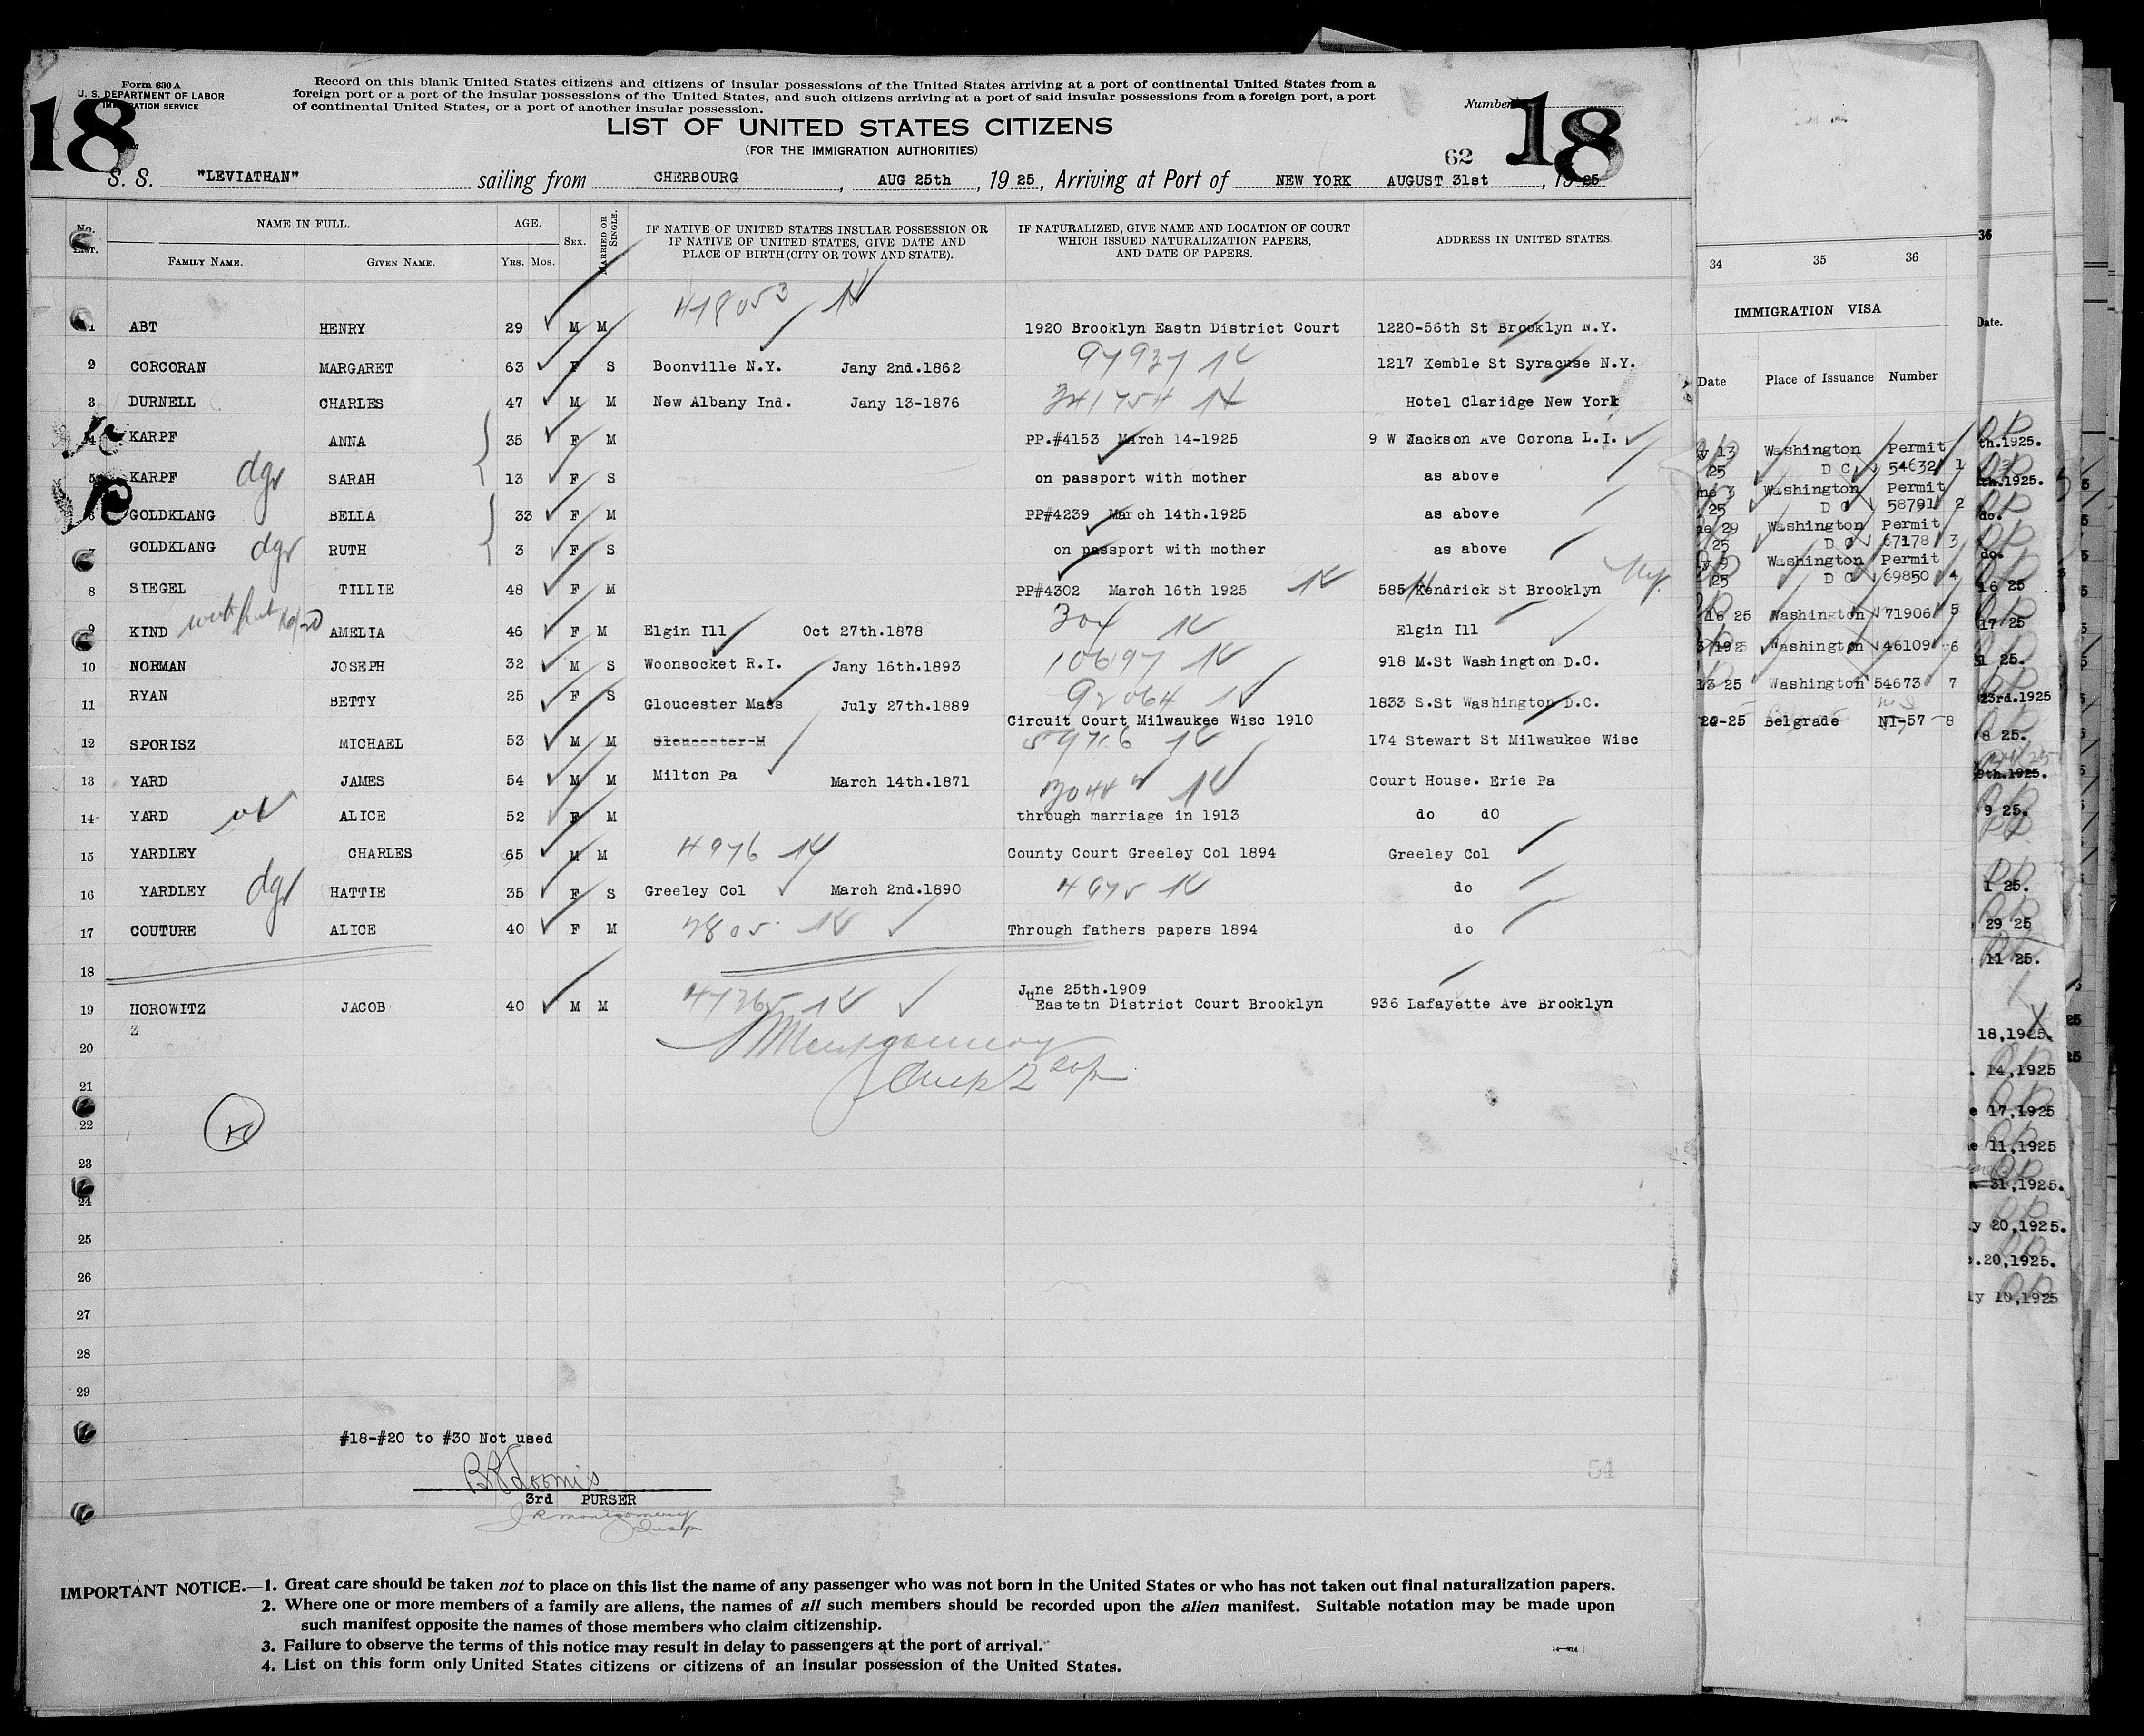 Form 630 A
U. S. DEPARTMENT OF LABOR
IMMIGRATION SERVICE
18
Record on this blank United States citizens and citizens of insular possessions of the United States arriving at a port of continental United States from a
foreign port or a port of the insular possessions of the United States, and such citizens arriving at a port of said insular possessions from a foreign port, a port
of continental United States, or a port of another insular possession.
Number
18
LIST OF UNITED STATES CITIZENS
(FOR THE IMMIGRATION AUTHORITIES)
62
S. S. "LEVIATHAN" sailing from CHERBOURG, AUG 25th, 1925, Arriving at Port of NEW YORK AUGUST 31st, 1925
No. List. NAME IN FULL. AGE. SEX. MARRIED OR SINGLE. IF NATIVE OF UNITED STATES INSULAR POSSESSION OR IF NATIVE OF UNITED STATES, GIVE DATE AND PLACE OF BIRTH (CITY OR TOWN AND STATE). IF NATURALIZED, GIVE NAME AND LOCATION OF COURT WHICH ISSUED NATURALIZATION PAPERS, AND DATE OF PAPERS. ADDRESS IN UNITED STATES.
FAMILY NAME. GIVEN NAME. Yrs. Mos.
418053
1 ABT HENRY 29 M M 1920 Brooklyn Eastn District Court 1220-56th St Brooklyn N.Y.
97937
2 CORCORAN MARGARET 63 F S Boonville N.Y. Jany 2nd.1862 1217 Kemble St Syracuse N.Y.
3 DURNELL CHARLES 47 M M New Albany Ind. Jany 13-1876 Hotel Claridge New York
4 KARPF ANNA 35 F M PP.#4153 March 14-1925 9 W Jackson Ave Corona L.I.
5 KARPF dgr SARAH 13 F S on passport with mother as above
6 GOLDKLANG BELLA 33 F M PP#4239 March 14th.1925 as above
7 GOLDKLANG dgr RUTH 3 F S on passport with mother as above
8 SIEGEL TILLIE 48 F M PP#4302 March 16th 1925 585 Kendrick St Brooklyn
9 KIND AMELIA 46 F M Elgin Ill Oct 27th.1878 304 Elgin Ill
10 NORMAN JOSEPH 32 M S Woonsocket R.I. Jany 16th.1893 10697 918 M.St Washington D.C.
11 RYAN BETTY 25 F S Gloucester Mass July 27th.1889 92064 1833 S.St Washington D.C.
Circuit Court Milwaukee Wisc 1910
12 SPORISZ MICHAEL 53 M M Gloucester-M 174 Stewart St Milwaukee Wisc
13 YARD JAMES 54 M M Milton Pa March 14th.1871 Court House. Erie Pa
14 YARD ALICE 52 F M through marriage in 1913 do dO
15 YARDLEY CHARLES 65 M M 4976 County Court Greeley Col 1894 Greeley Col
16 YARDLEY dgr HATTIE 35 F S Greeley Col March 2nd.1890 4975 do
17 COUTURE ALICE 40 F M Through fathers papers 1894 do
18
June 25th.1909
19 HOROWITZ JACOB 40 M M 47365 Eastetn District Court Brooklyn 936 Lafayette Ave Brooklyn
Z
Montgomery
20
21
22
23
24
25
26
27
28
29
#18-#20 to #30 Not used
B Loomis
3rd PURSER
J R Montgomery
Insp
54
IMPORTANT NOTICE.—1. Great care should be taken not to place on this list the name of any passenger who was not born in the United States or who has not taken out final naturalization papers.
2. Where one or more members of a family are aliens, the names of all such members should be recorded upon the alien manifest. Suitable notation may be made upon
such manifest opposite the names of those members who claim citizenship.
3. Failure to observe the terms of this notice may result in delay to passengers at the port of arrival.
4. List on this form only United States citizens or citizens of an insular possession of the United States.
34 35 36
IMMIGRATION VISA
Date Place of Issuance Number
13 Washington Permit
25 D C 54632 1
3 Washington Permit
25 D C 58791 2
29 Washington Permit
25 D C 67178 3
9 Washington Permit
25 D C 69850 4
16 25 Washington 71906 5
Washington 46109 6
13 25 Washington 54673 7
24-25 Belgrade NI-57 8
36
Date.
th.1925.
th.1925.
do.
do.
16 25
17 25
1 25.
23rd.1925
8 25.
9th.1925.
9 25.
1 25.
29 25
11 25.
18,1925.
14,1925
17,1925
11,1925
31,1925.
20,1925.
.20,1925.
10,1925